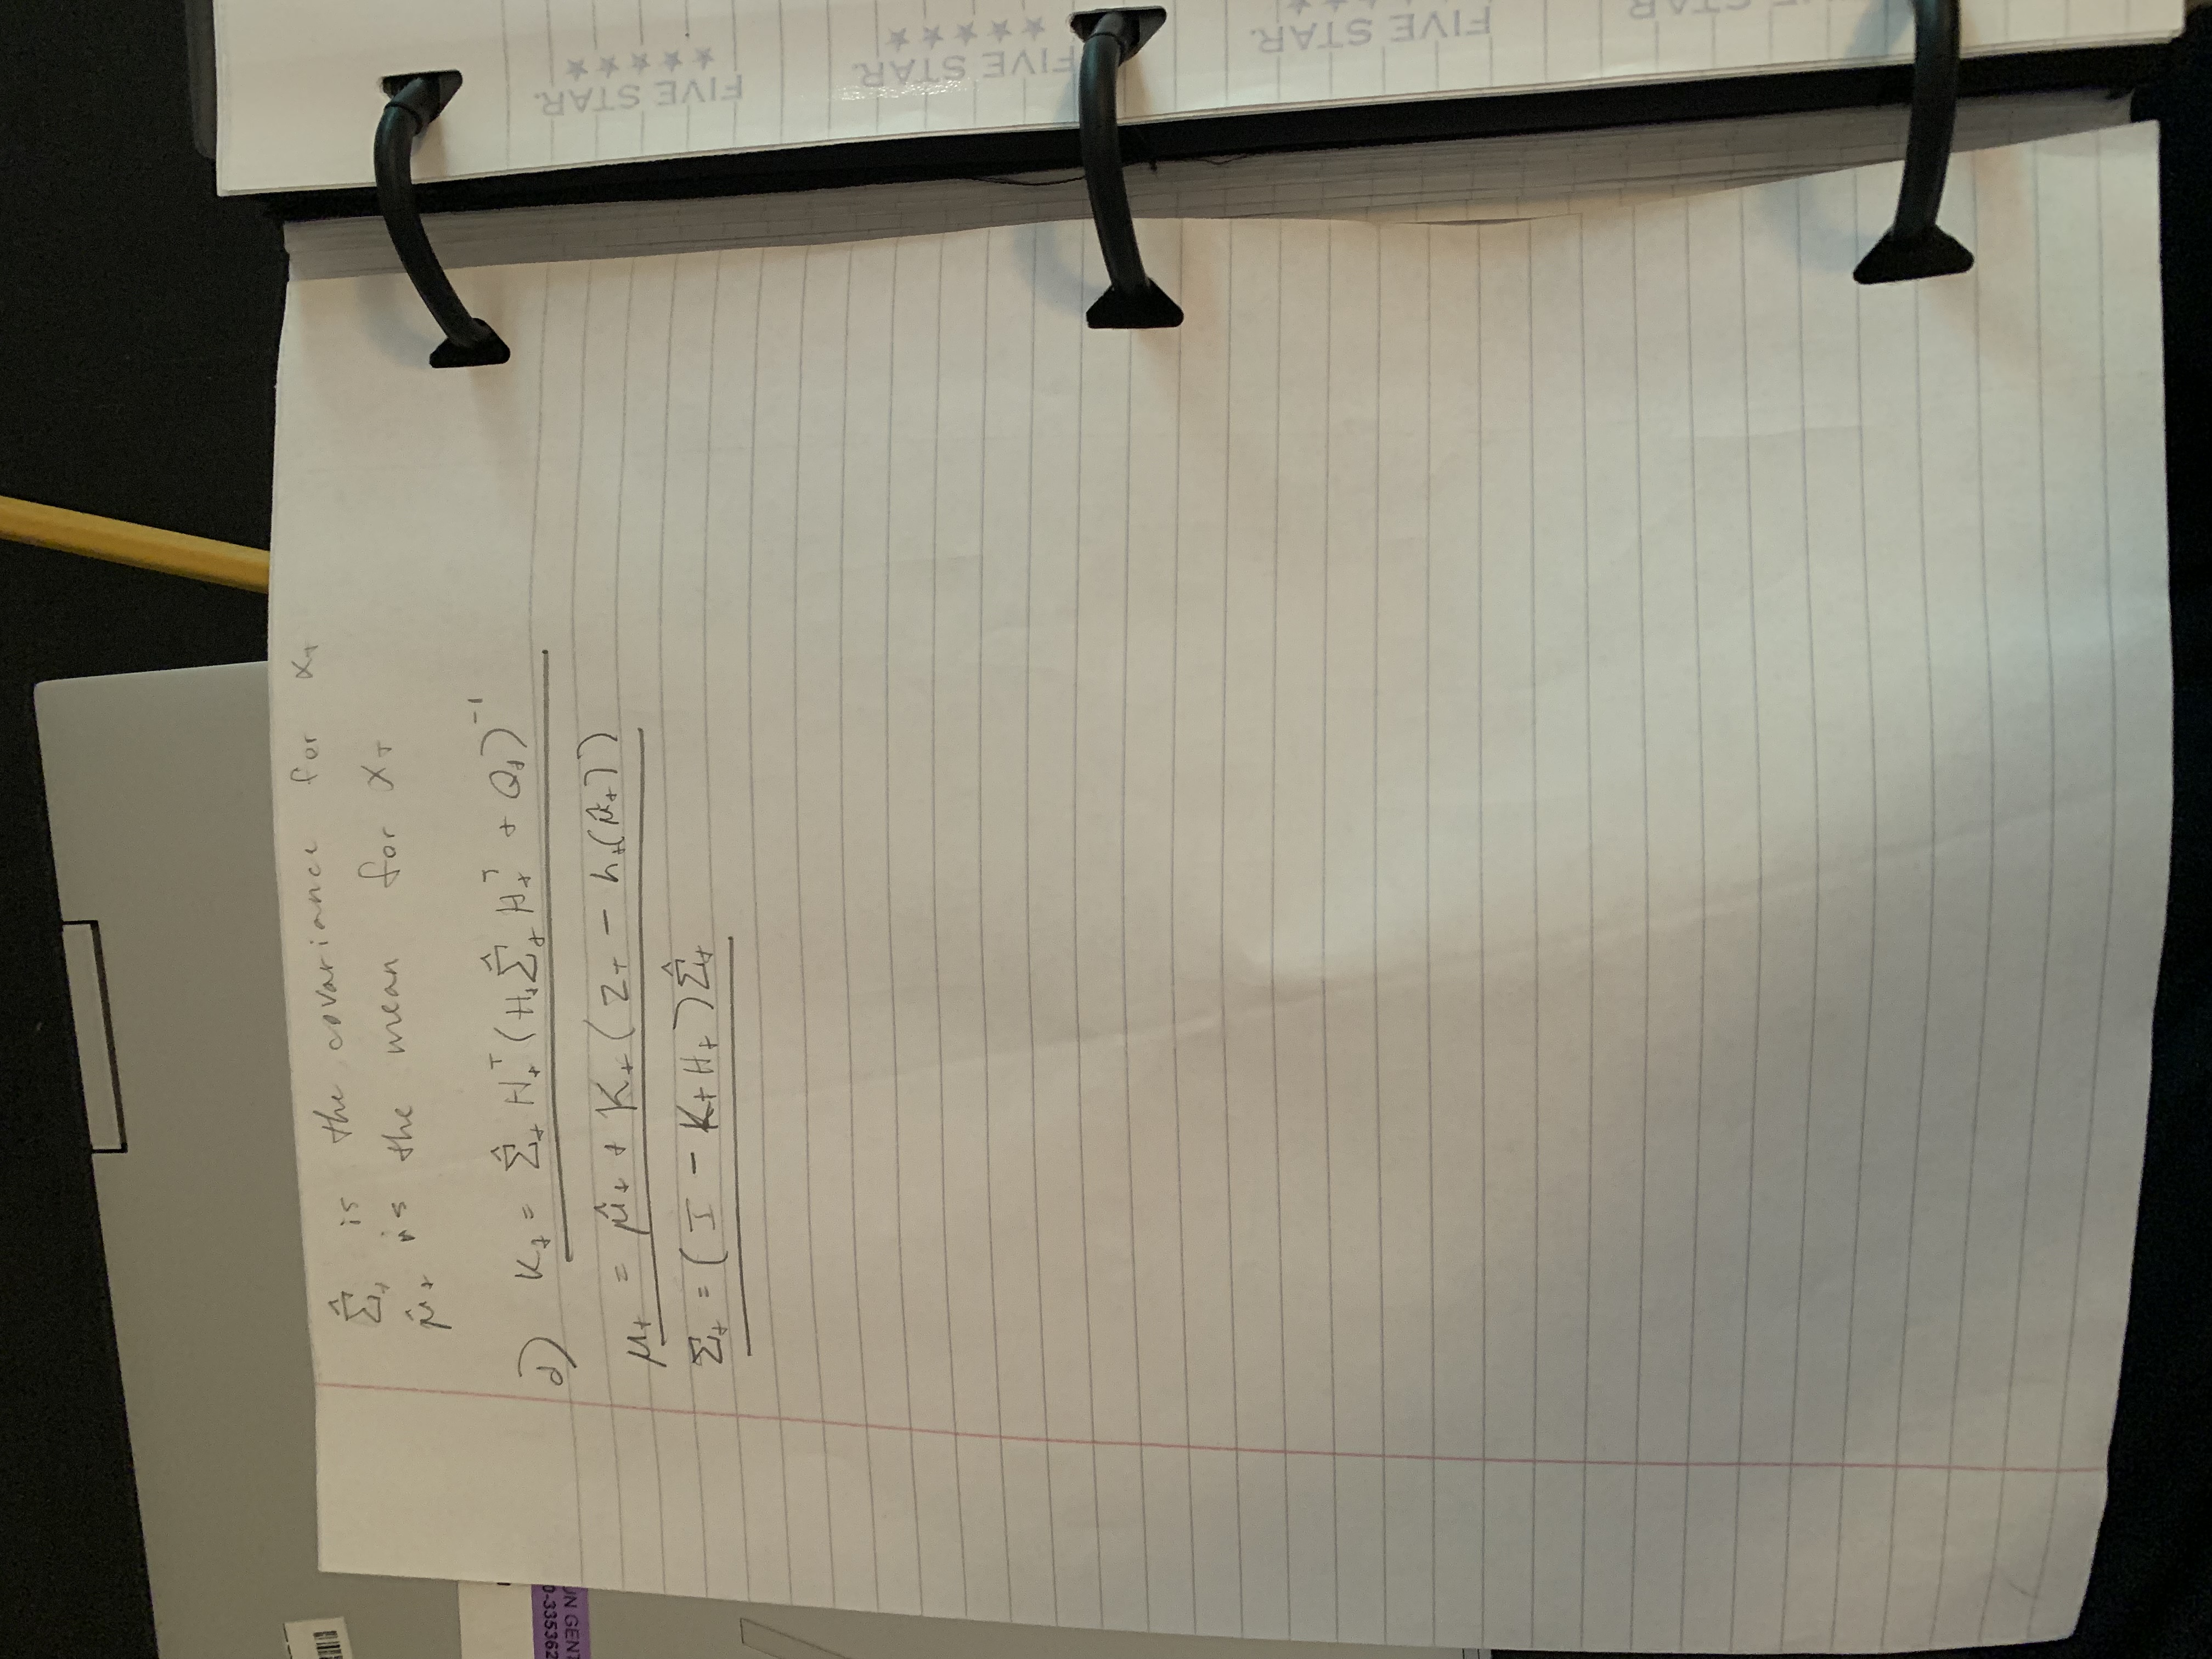 Σ̂ₜ is the covariance for xₜ
μ̂ₜ is the mean for xₜ
d) Kₜ = Σ̂ₜ Hₜᵀ (Hₜ Σ̂ₜ Hₜᵀ + Qₜ)⁻¹
μₜ = μ̂ₜ + Kₜ (zₜ − hₜ(μ̂ₜ))
Σₜ = (I − KₜHₜ) Σ̂ₜ
0-335362
UN GENT
FIVE STAR.
★★★★★
FIVE STAR.
★★★★★
FIVE STAR.
STAR